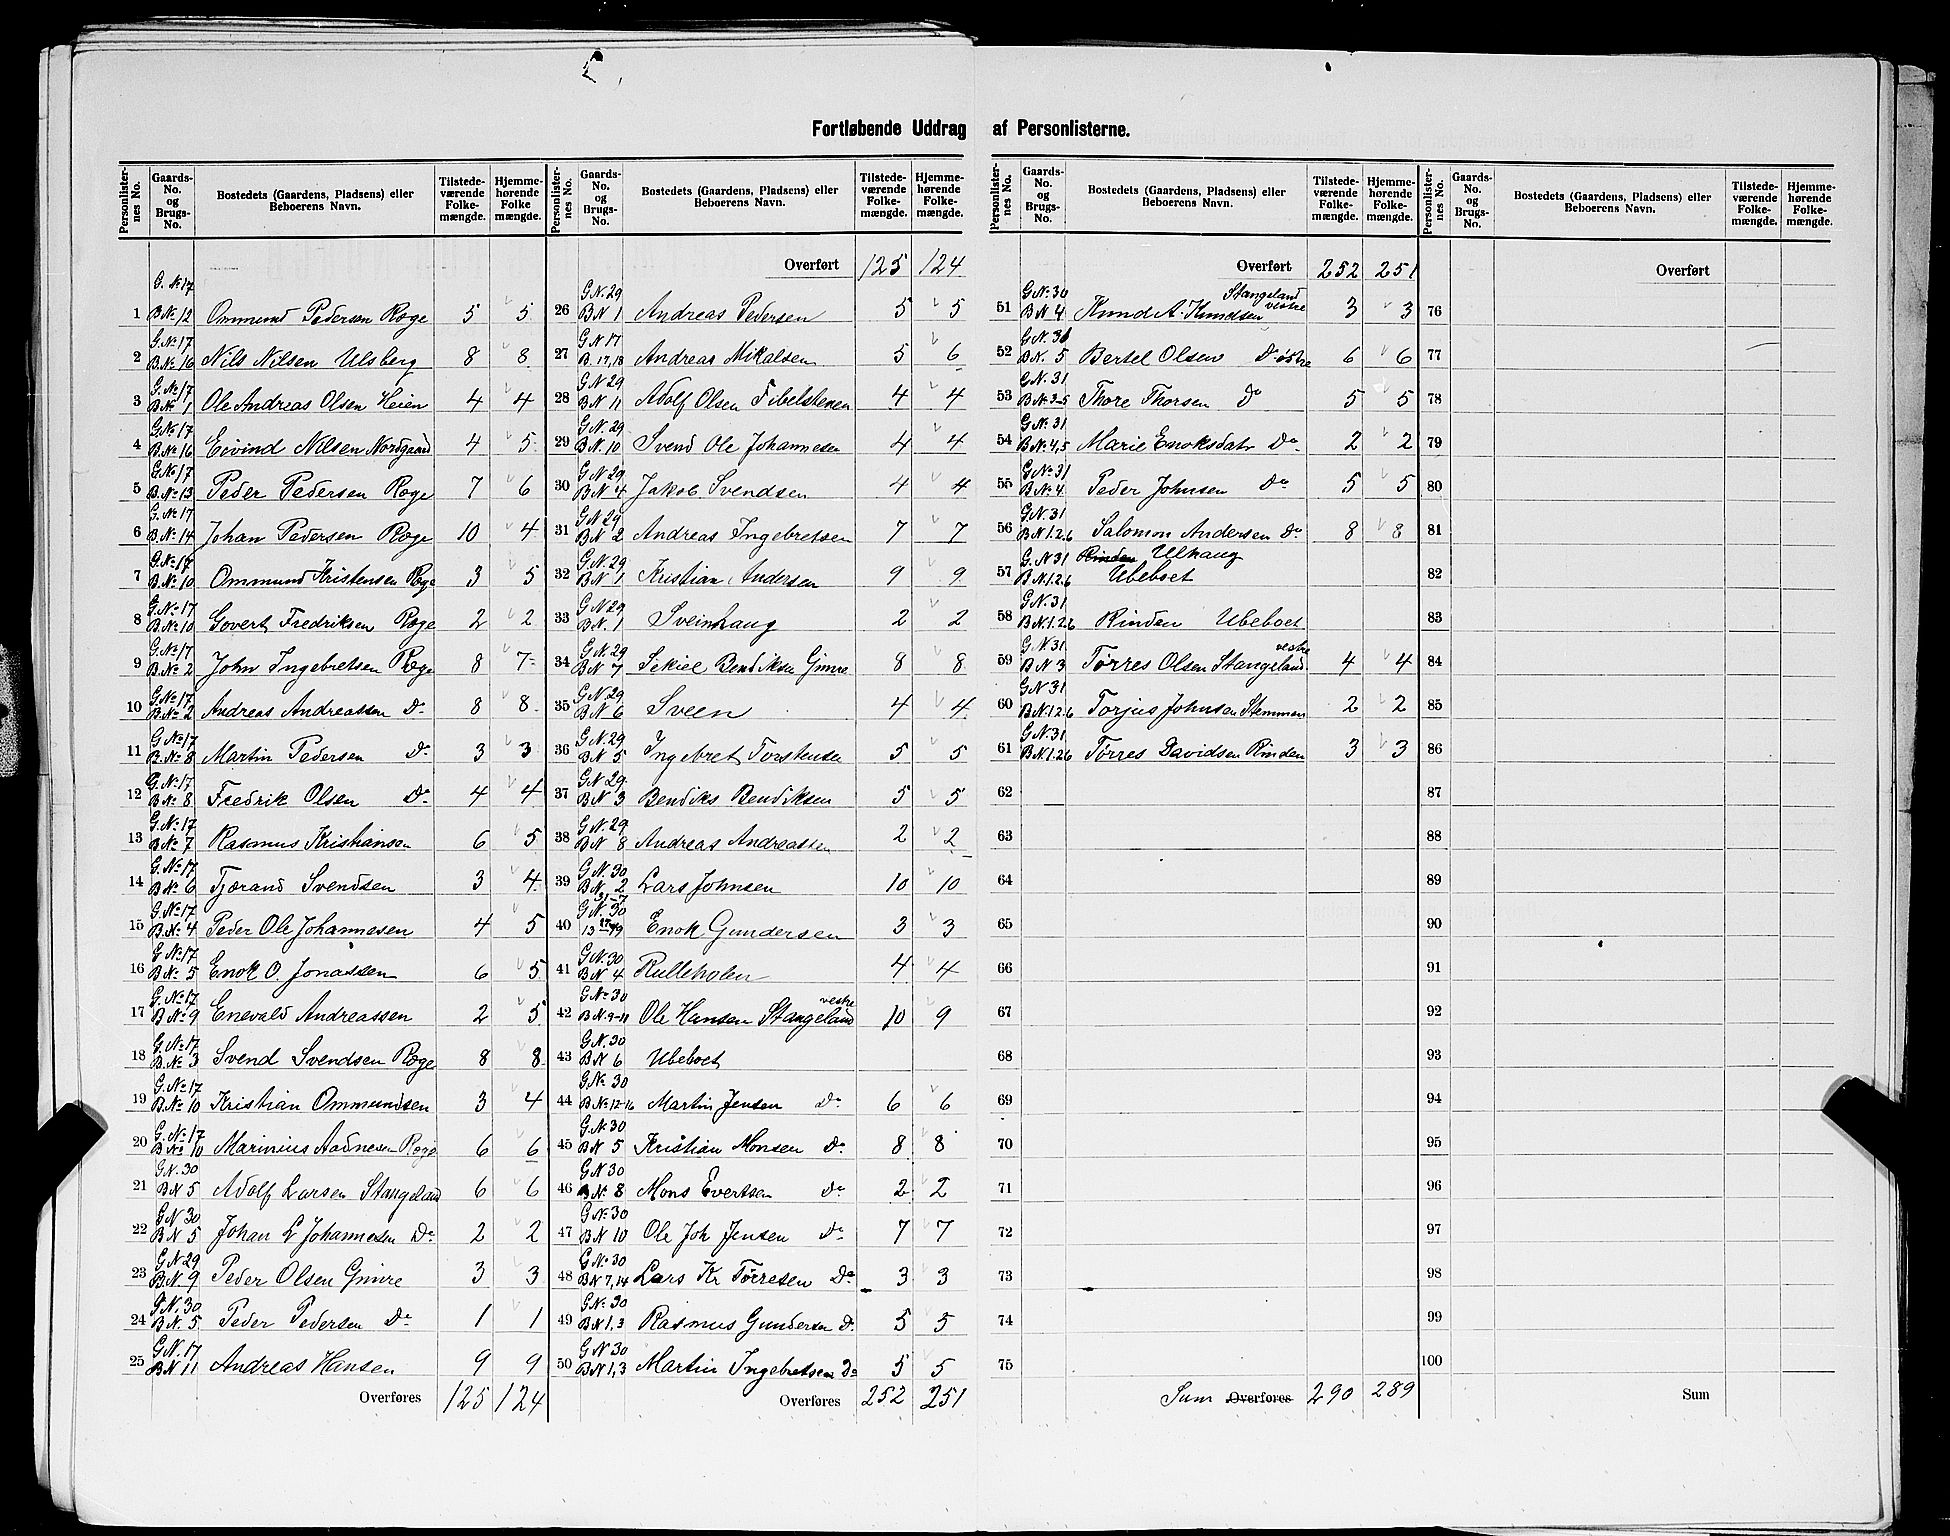 Fortløbende Uddrag af Personlisterne.
Personlisternes No. Gaards-No. og Brugs-No. Bostedets (Gaardens, Pladsens) eller Beboerens Navn. Tilstedeværende Folkemængde. Hjemmehørende Folke mængde.
1 G. No 17 B.No 12 Ommund Pedersen Roge 5 5
2 G.No 17 B.No 16 Nils Nilsen Ulsberg 8 8
3 G.No 17 B.No 1 Ole Andreas Olsen Heien 4 4
4 G.No 17 B.No 16 Eivind Nilsen Nordgaard 4 5
5 G.No 17 B.No 13 Peder Pedersen Roge 7 6
6 G.No 17 B.No 14 Johan Pedersen Roge 10 4
7 G.No 17 B.No 10 Ommund Kristensen Roge 3 5
8 G.No 17 B.No 10 Govert Fredriksen Roge 2 2
9 G.No 17 B.No 2 John Ingebretsen Roge 8 7
10 G.No 17 B.No 2 Andreas Andreassen Do 8 8
11 G.No 17 B.No 8 Martin Pedersen Do 3 3
12 G.No 17 B.No 8 Fredrik Olsen Do 4 4
13 G.No 17 B.No 7 Rasmus Kristiansen 6 5
14 G.No 17 B.No 6 Tjørand Svendsen 3 4
15 G.No 17 B.No 4 Peder Ole Johannesen 4 5
16 G.No 17 B.No 5 Enok O. Jonassen 6 5
17 G.No 17 B.No 9 Enevald Andreassen 2 5
18 G.No 17 B.No 3 Svend Svendsen Roge 8 8
19 G.No 17 B.No 10 Kristian Ommundsen 3 4
20 G.No 17 B.No 10 Marinius Aadnesen Roge 6 6
21 G.N.30 B.N 5 Adolf Larsen Stangeland 6 6
22 G.N 30 B.N 5 Johan L Johannesen Do 2 2
23 G.N 29 B.N. 9 Peder Olsen Gimre 3 3
24 G.N.30 B.N. 5 Peder Pedersen Do 1 1
25 G.N.17 B.N 11 Andreas Hansen 9 9
Overføres 125 124
Personlisternes No. Gaards-No. og Brugs-No. Bostedets (Gaardens, Pladsens) eller Beboerens Navn. Tilstedeværende Folkemængde. Hjemmehørende Folkemængde.
Overført 125 124
26 G.N.29 B.N 1 Andreas Pedersen 5 5
27 G.N 17 B. 17,18 Andreas Mikalsen 5 6
28 G.N 29 B.N 11 Adolf Olsen 4 4
29 G.N.29 B.N. 10 Svend Ole Johannesen 4 4
30 G.N.29 B.N 4 Jakob Svendsen 4 4
31 G.N 29 B.N 2 Andreas Ingebretsen 7 7
32 G.N.29 B.N 1 Kristian Andersen 9 9
33 G.N 29 B.N. 1 Sveinhaug 2 2
34 G.N.29 B.N 7 Sekiel Bendiksen Gimre 8 8
35 G.N.29 B.N 6 Sveen 4 4
36 G.N.29 B.N 5 Ingebret Torstensen 5 5
37 G.N.29 B.N 3 Bendiks Bendiksen 5 5
38 G.N.29 B.N 8 Andreas Andreassen 2 2
39 G.N.30 B.N. 2 Lars Johnsen 10 10
40 31-7 G.N.30 13 17 19 Enok Gundersen 3 3
41 G.N.30 B.N 4 Rulleholen 4 4
42 G.No 30 B.N.9-11 Ole Hansen Stangeland vestre 10 9
43 G.N.30 B.N 6 Ubeboet
44 G.No 30 B.No 12-16 Martin Jensen Do 6 6
45 G.N.30 B.N 5 Kristian Monsen Do 8 8
46 G.N 30 B.N. 8 Mons Evertsen Do 2 2
47 G.No 30 B.N 10 Ole Joh Jensen Do 7 7
48 G.No 30 B.N 7,14 Lars Kr Tørresen Do 3 3
49 G.No 30 B.N 1,3 Rasmus Gundersen Do 5 5
50 G.N 30 B.N 1,3 Martin Ingebretsen Do 5 5
Overføres 252 251
Personlisternes No. Gaards-No. og Brugs-No. Bostedets (Gaardens, Pladsens) eller Beboerens Navn. Tilstedeværende Folkemængde. Hjemmehørende Folkemængde.
Overført 252 251
51 G.No 30 B.N 4 Knud A. Knudsen Stangeland vestre 3 3
52 G.N.31 B.N. 5 Bertel Olsen Do østre 6 6
53 G.N.31 B.N.3-5 Thore Thorsen Do 5 5
54 G.No.31 B.N.4,5 Marie Enoksdatr Do 2 2
55 G.No 31 B.No 4. Peder Johnsen Do 5 5
56 G.N.31 B.N.1.2.6 Salomon Andersen Do 8 8
57 G.N 31 B.N.1.2.6 Rinden Ulhaug Ubeboet
58 G.N.31 B.N.1.2.6 Rinden Ubeboet
59 G.N.31 B.N 3 Tørres Olsen Stangeland vestre 4 4
60 G.N 31 B.N.1.2.6 Torjus Johnsen Stemmen 2 2
61 G.N.31 B.N.1.2.6 Tørres Davidsen Rinden 3 3
62
63
64
65
66
67
68
69
70
71
72
73
74
75
Sum Overføres 290 289
Personlisternes No. Gaards-No. og Brugs-No. Bostedets (Gaardens, Pladsens) eller Beboerens Navn. Tilstedeværende Folkemængde. Hjemmehørende Folkemængde.
Overført
76
77
78
79
80
81
82
83
84
85
86
87
88
89
90
91
92
93
94
95
96
97
98
99
100
Sum